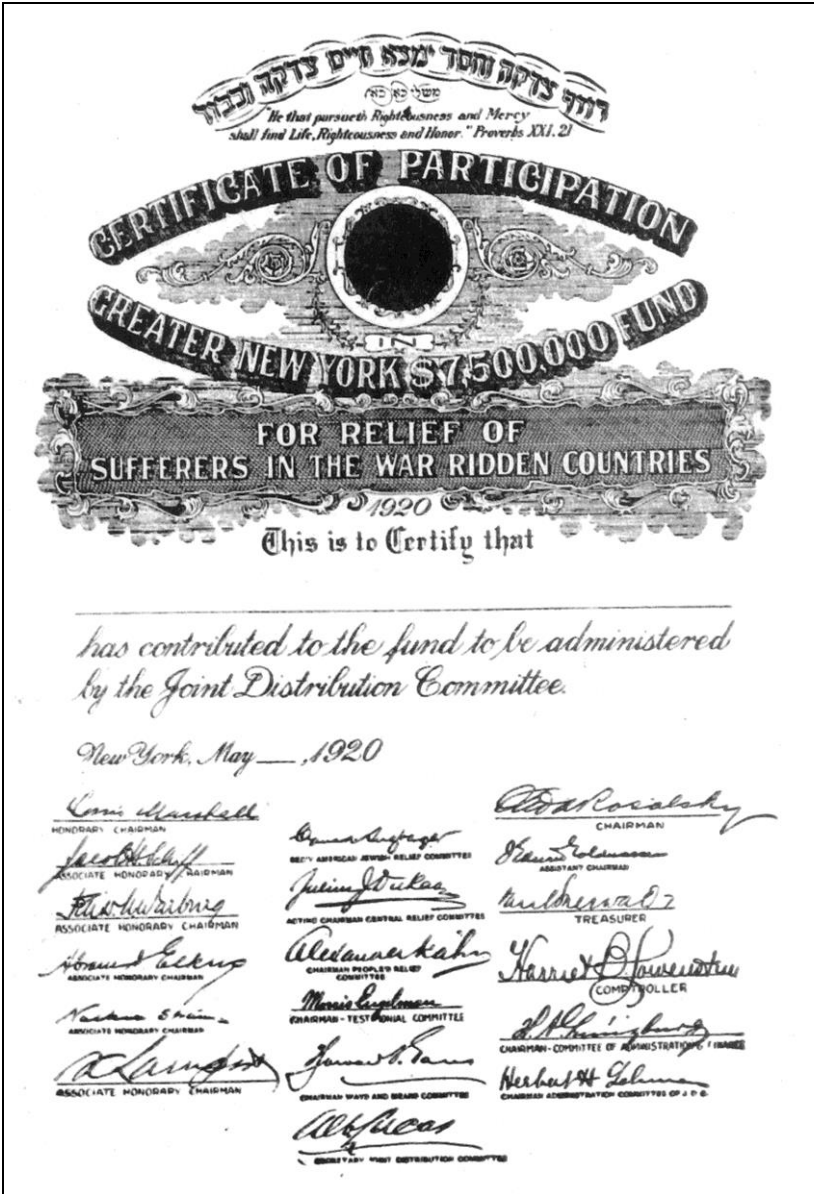 רודף צדקה וחסד ימצא חיים צדקה וכבוד
משלי כא כא
"He that pursueth Righteousness and Mercy
shall find Life, Righteousness and Honor." Proverbs XXI. 21
CERTIFICATE OF PARTICIPATION
IN
GREATER NEW YORK $7,500,000 FUND
FOR RELIEF OF
SUFFERERS IN THE WAR RIDDEN COUNTRIES
1920
This is to Certify that
has contributed to the fund to be administered
by the Joint Distribution Committee.
New York, May ___, 1920
Louis Marshall
HONORARY CHAIRMAN
Jacob H. Schiff
ASSOCIATE HONORARY CHAIRMAN
Felix M. Warburg
ASSOCIATE HONORARY CHAIRMAN
Abram I. Elkus
ASSOCIATE HONORARY CHAIRMAN
Nathan Straus
ASSOCIATE HONORARY CHAIRMAN
ASSOCIATE HONORARY CHAIRMAN
SECY AMERICAN JEWISH RELIEF COMMITTEE
Julius J. Dukas
ACTING CHAIRMAN CENTRAL RELIEF COMMITTEE
Alexander Kahn
CHAIRMAN PEOPLE'S RELIEF
COMMITTEE
Morris Engelman
CHAIRMAN - TESTIMONIAL COMMITTEE
CHAIRMAN WAYS AND MEANS COMMITTEE
Alb Lucas
SECRETARY JOINT DISTRIBUTION COMMITTEE
Otto A Rosalsky
CHAIRMAN
ASSISTANT CHAIRMAN
Paul Baerwald
TREASURER
Harriet B. Lowenstein
COMPTROLLER
CHAIRMAN - COMMITTEE OF ADMINISTRATION & FINANCE
Herbert H Lehman
CHAIRMAN ADMINISTRATION COMMITTEE OF J D C